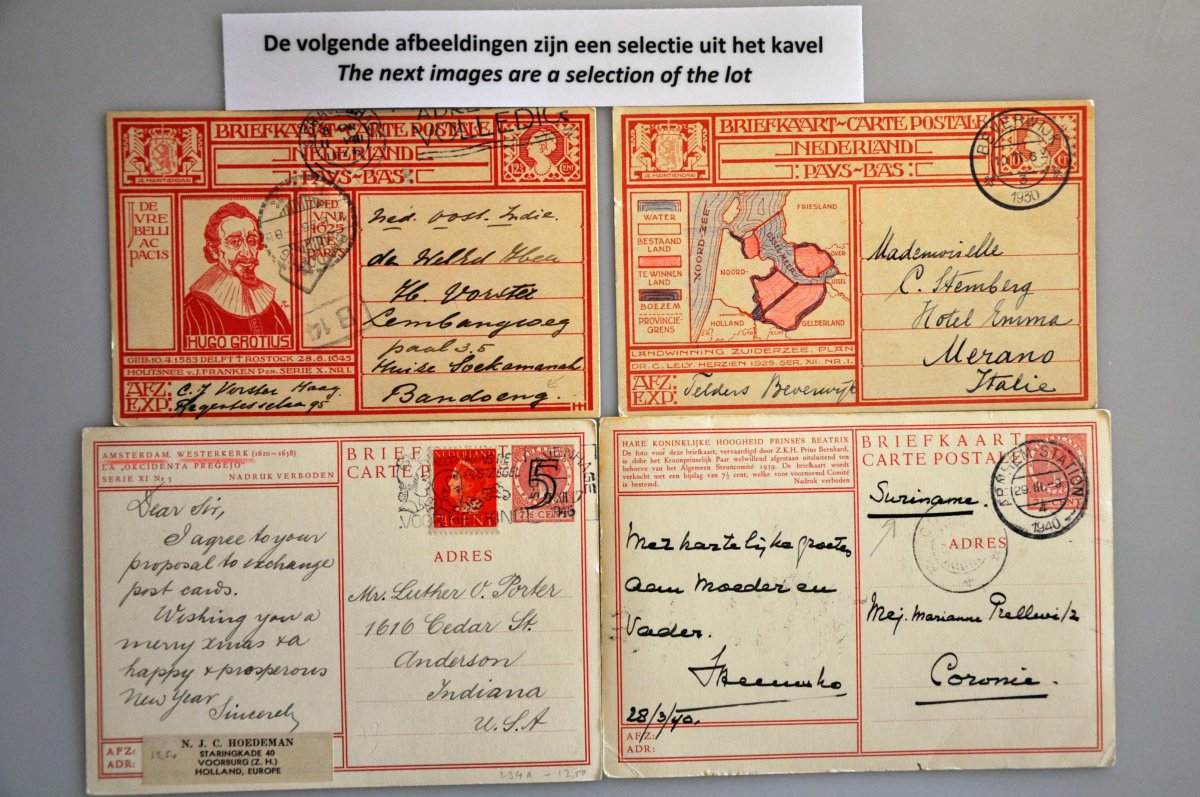 De volgende afbeeldingen zijn een selectie uit het kavel
The next images are a selection of the lot
BRIEFKAART-CARTE POSTALE
NEDERLAND
PAYS-BAS:
JE MAINTIENDRAI
12½ CENT
VOLLEDIG
DE VRE
BELLI
AC
PACIS
1625
HUGO GROTIUS
GEB: 10.4.1583 DELFT † ROSTOCK 28.8.1645
HOUTSNEE v. J. FRANKEN PZN. SERIE X. NR 1.
AFZ:
EXP:
C. J. Vorster Haag
95
Ned. Oost. Indie.
H. Vorster
Lembangweg
paal 3,5
Huize Soekamanah
Bandoeng.
B 14
BRIEFKAART~CARTE POSTALE
NEDERLAND
PAYS-BAS:
JE MAINTIENDRAI
BEVERWIJK
1930
WATER
BESTAAND
LAND
TE WINNEN
LAND
BOEZEM
PROVINCIE-
GRENS
NOORD-ZEE
FRIESLAND
IJSSEL-MEER
OVER-
IJSSEL
NOORD-
HOLLAND
GELDERLAND
LANDWINNING ZUIDERZEE. PLAN
DR. C. LELY. HERZIEN 1925. SER. XII. NR. 1.
AFZ:
EXP:
Telders Beverwijk
Mademoiselle
C. Stemberg
Hotel Emma
Merano
Italie
AMSTERDAM, WESTERKERK (1620–1638)
LA „OKCIDENTA PREGEJO"
SERIE XI Nr 1 NADRUK VERBODEN
BRIEFKAART
CARTE POSTALE
NEDERLAND
5
7½ CENT
ADRES
Dear Sir,
I agree to your
proposal to exchange
post cards.
Wishing you a
merry xmas & a
happy & prosperous
New Year
Sincerely
Mr. Luther O. Porter
1616 Cedar St.
Anderson
Indiana
U.S.A
AFZ:
ADR:
12,50
N. J. C. HOEDEMAN
STARINGKADE 40
VOORBURG (Z. H.)
HOLLAND, EUROPE
234A – 12,50
HARE KONINKLIJKE HOOGHEID PRINSES BEATRIX
De foto voor deze briefkaart, vervaardigd door Z.K.H. Prins Bernhard,
is door het Kroonprinselijk Paar welwillend afgestaan uitsluitend ten
behoeve van het Algemeen Steuncomité 1939. De briefkaart wordt
verkocht met een bijslag van 7½ cent, welke voor voornoemd Comité
is bestemd. Nadruk verboden
BRIEFKAART
CARTE POSTALE
ARNHEM-STATION
29.III
1940
Suriname.
ADRES
Met hartelijke groeten
aan Moeder en
Vader.
28/3/40.
Mej. Marianne Prellwitz
Coronie.
AFZ.:
ADR: